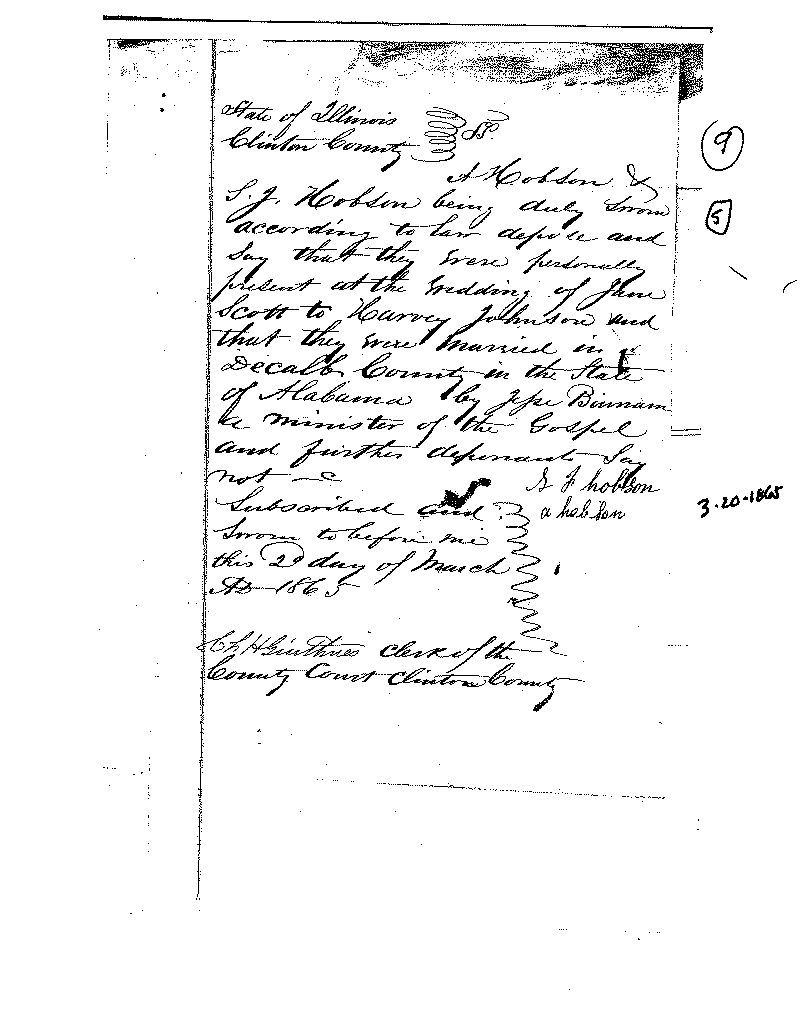 State of Illinois
Clinton County } SS.
A Hobson &
S. J. Hobson being duly sworn
according to law depose and
Say that they were personally
present at the wedding of Jane
Scott to Harvey Johnson and
that they were married in
Decalb County in the State
of Alabama by Jesse Binnam
a minister of the Gospel
and further deponants Say
not
S J hobson
a hobson
Subscribed and
Sworn to before me
this 20 day of March
AD 1865
clerk of the
County Court Clinton County
9
5
3-20-1865